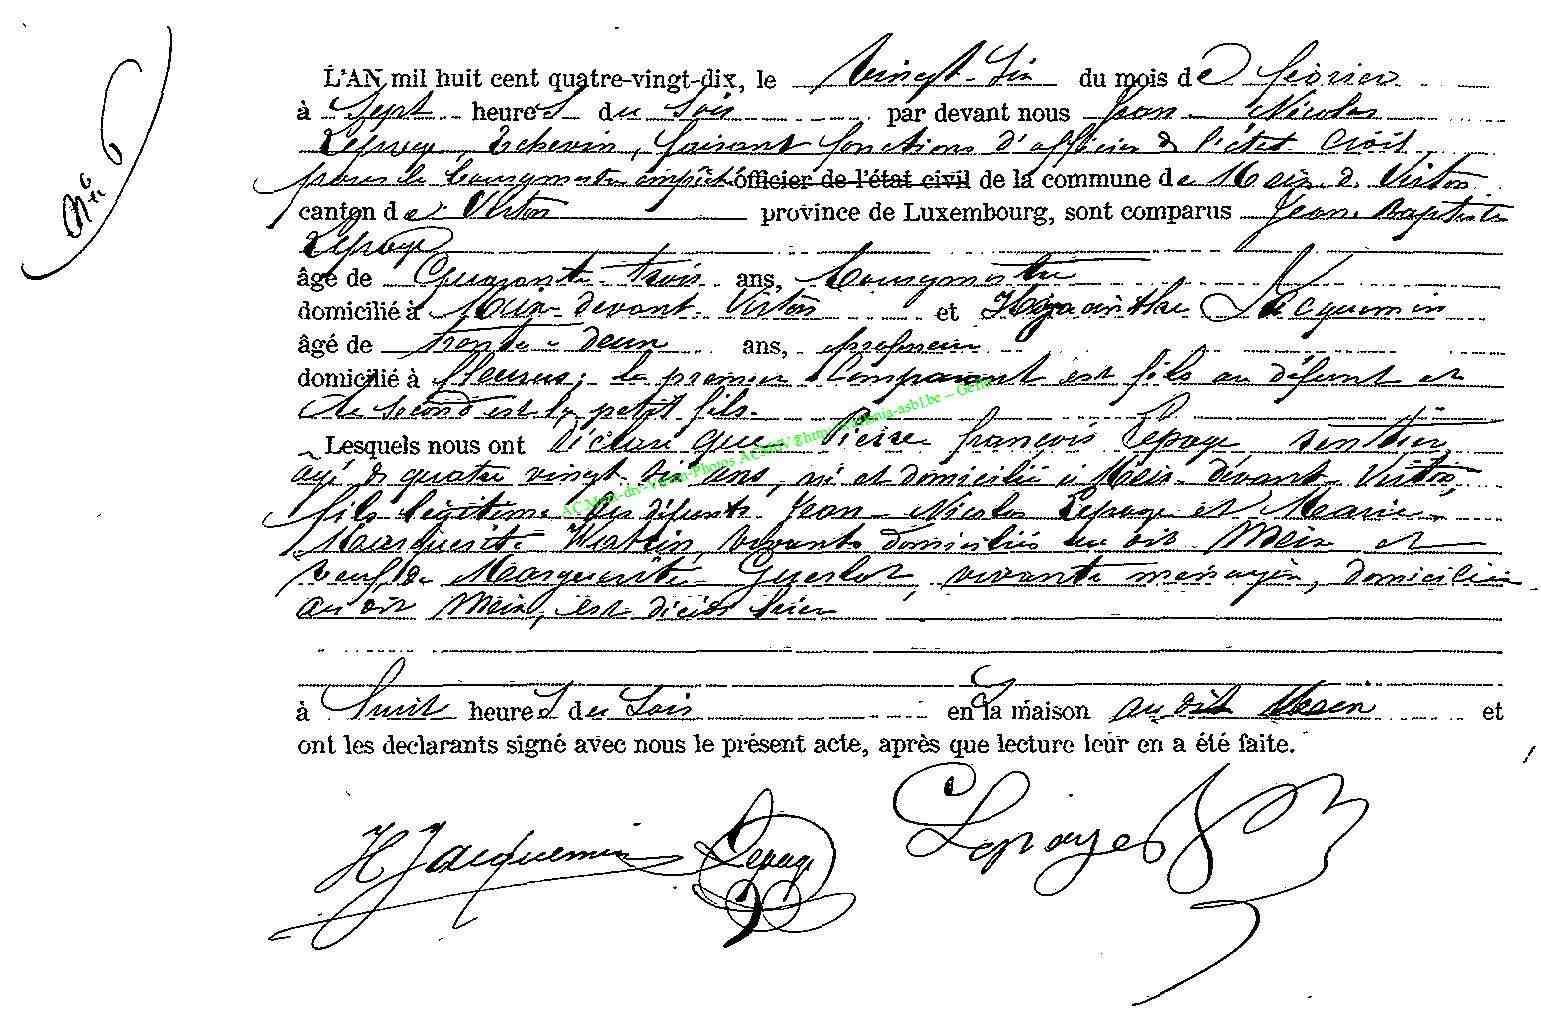 N° 6
L'AN mil huit cent quatre-vingt-dix, le vingt-six du mois de février
à sept heures du soir par devant nous Jean Nicolas
Lepage, Echevin, faisant fonctions d'officier de l'état civil
pour le bourgmestre empêché officier de l'état civil de la commune de Meix-d-Virton
canton de Virton province de Luxembourg, sont comparus Jean Baptiste
Lepage
âgé de quarante-trois ans, bourgmestre
domicilié à Meix-devant-Virton et Hyacinthe Jacquemin
âgé de trente-deux ans, professeur
domicilié à fleurus; le premier comparant est fils au défunt et
le second est le petit fils.
Lesquels nous ont déclaré que Pierre françois Lepage, rentier
âgé de quatre vingt ans, né et domicilié à Meix-devant-Virton,
fils légitime des défunts Jean-Nicolas Lepage et Marie
Marguerite Watrin, vivants domiciliés au dit Meix et
veuf de Marguerite Guerlot, vivante ménagère, domiciliée
au dit Meix, est décédé hier
à huit heures du soir en la maison au dit Meix et
ont les declarants signé avec nous le présent acte, après que lecture leur en a été faite.
H Jacquemin Lepage Lepage